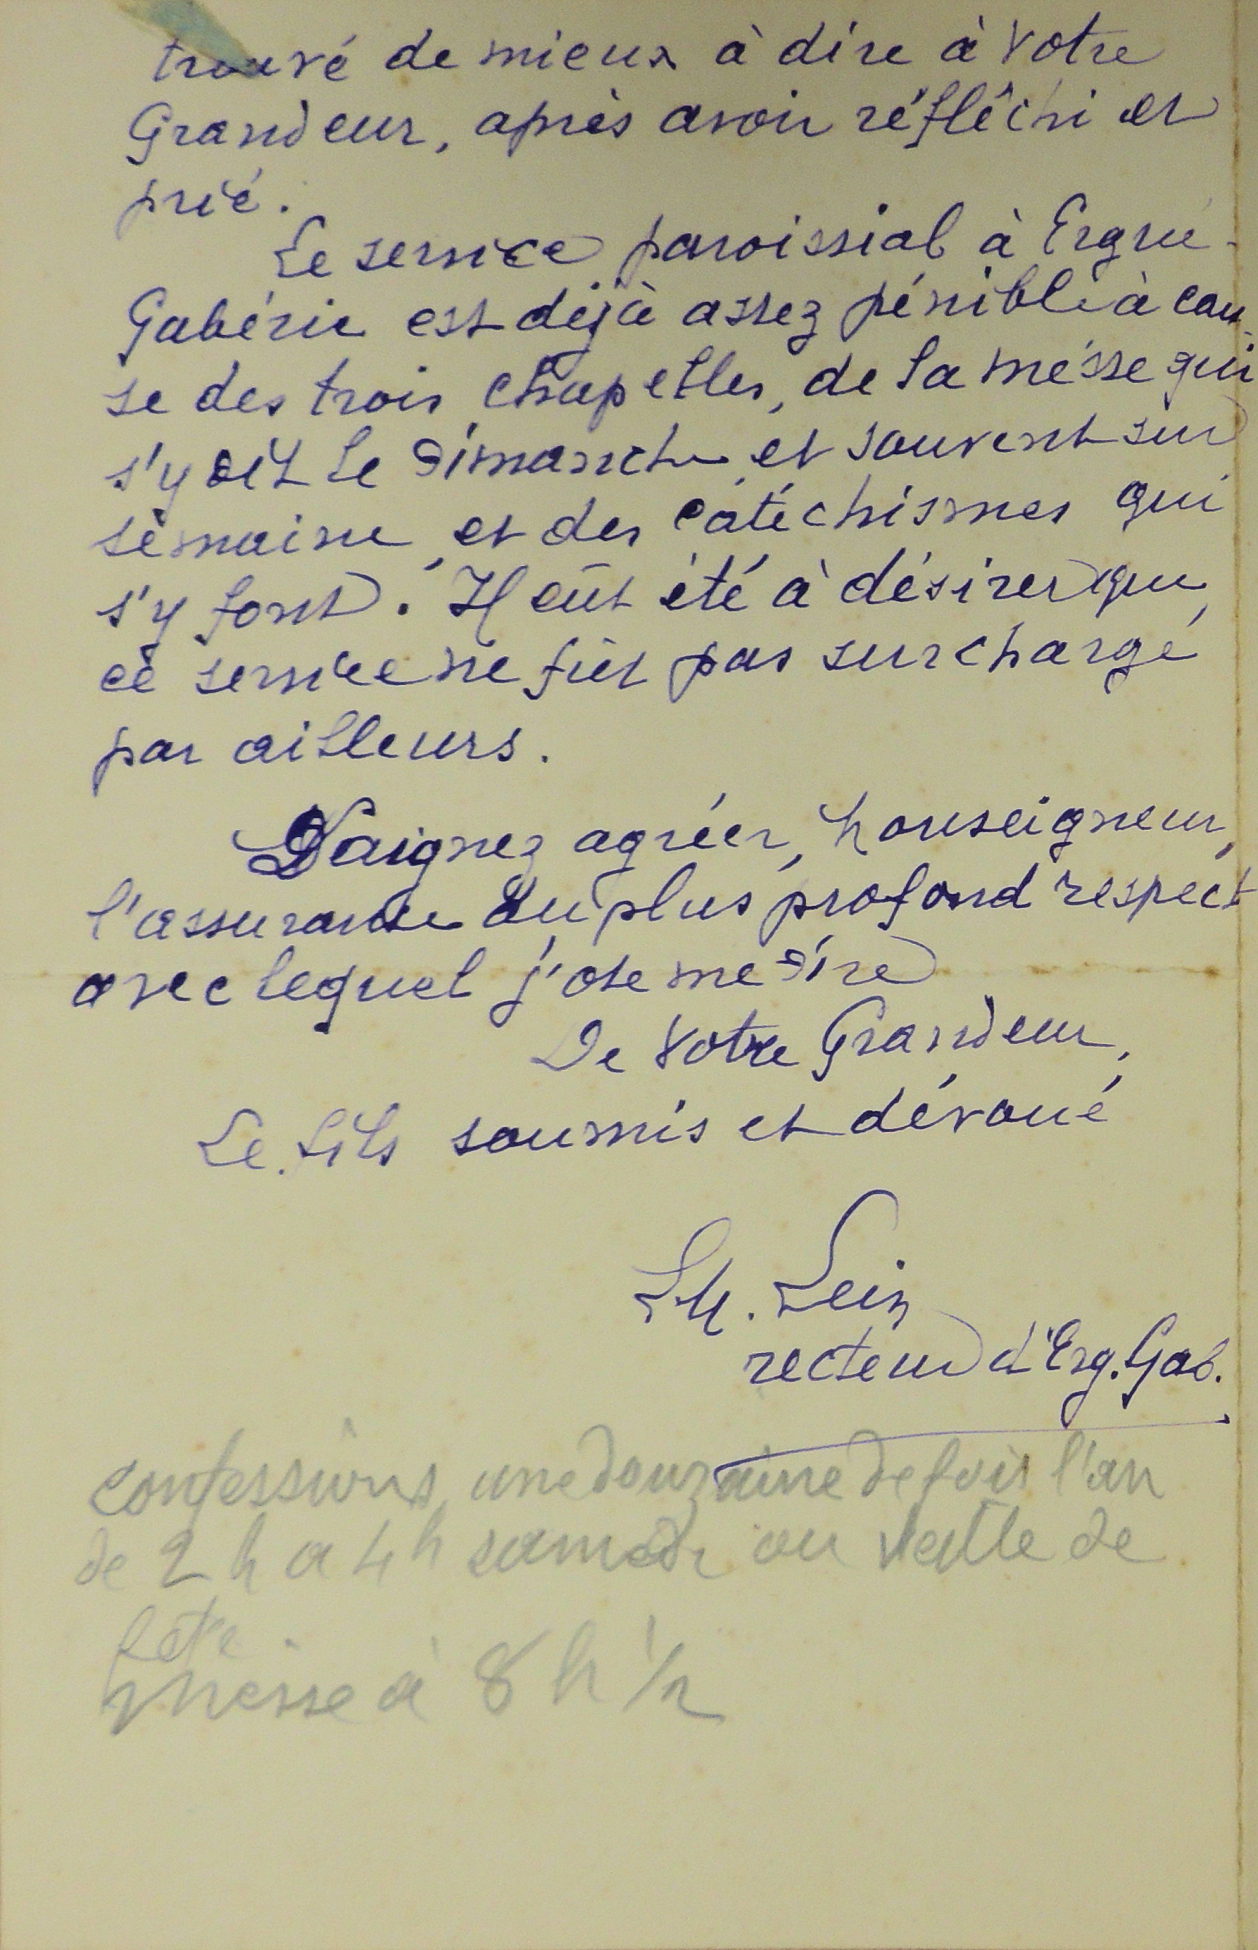 trouvé de mieux à dire à Votre
Grandeur, après avoir réfléchi et
prié.
Le service paroissial à Ergué-
Gabéric est déjà assez pénible à cau-
se des trois chapelles, de la messe qui
s'y dit le dimanche et souvent sur
semaine, et des catéchismes qui
s'y font. Il eût été à désirer que
ce service ne fût pas surchargé
par ailleurs.
Daignez agréer, Monseigneur,
l'assurance du plus profond respect
avec lequel j'ose me dire
De Votre Grandeur,
Le fils soumis et dévoué
L. Lein
recteur d'Erg. Gab.
confessions, une douzaine de fois l'an
de 2 h a 4 h samedi ou veille de
fete
messe à 8 h 1/2